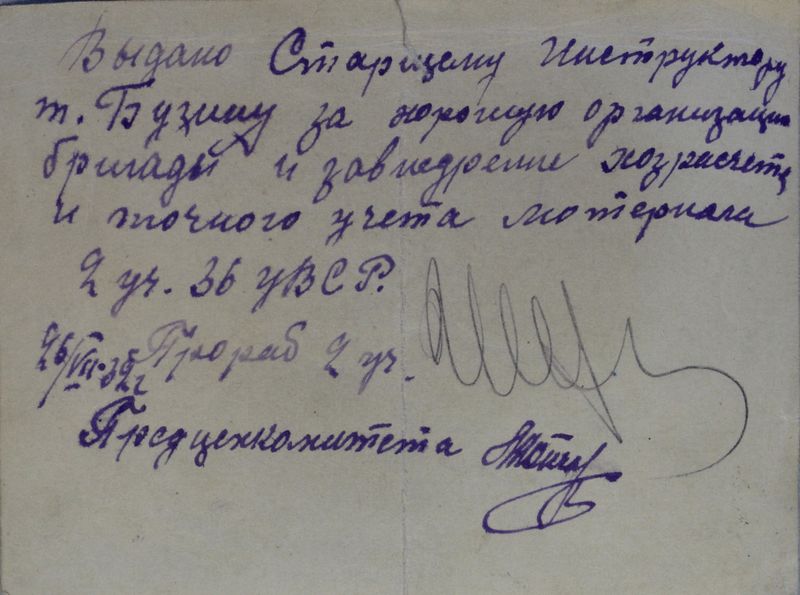 Выдано Старшему Инструктору
т. Бузину за хорошую организацию
бригады и за внедрение хозрасчета
и точного учета материала
2 уч. 36 УВСР.
26/VII-32г Прораб 2 уч.
Предценкомитета